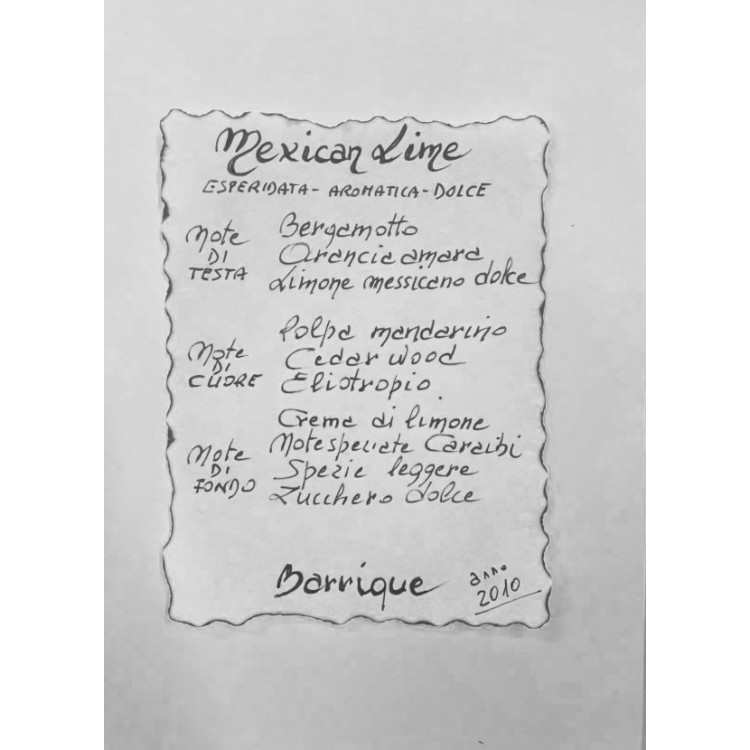 Mexican Lime
ESPERIDATA - AROMATICA - DOLCE
Note DI TESTA
Bergamotto
Arancia amara
Limone messicano dolce
Note DI CUORE
Polpa mandarino
Cedar wood
Eliotropio
Note DI FONDO
Crema di limone
Note speziate Caraibi
Spezie leggere
Zucchero dolce
Barrique
anno
2010